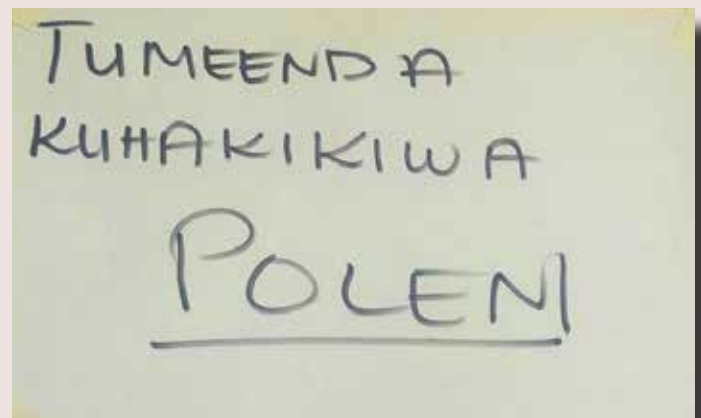 TUMEENDA
KUHAKIKIWA
POLENI